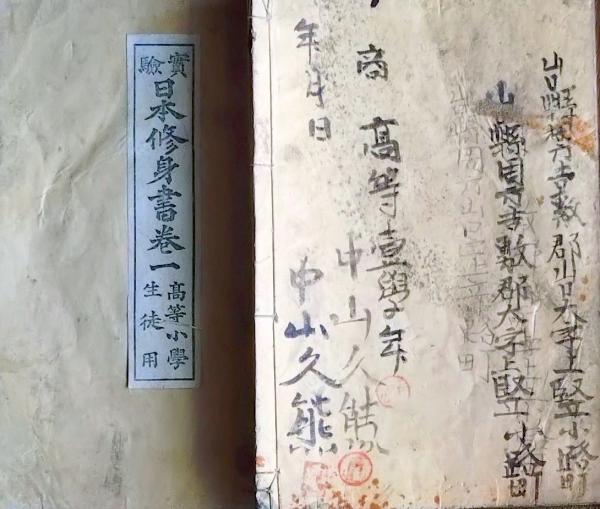 實驗
日本修身書卷一
高等小學
生徒用
山口縣周方吉敷郡山口大字上竪小路町
山縣周方吉敷郡大字上竪小路町
高等壹學年
商
中山久熊
年月日
中山久熊